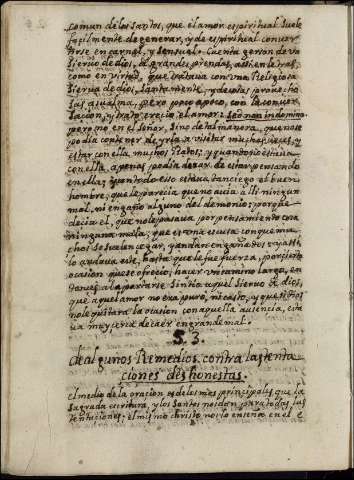 comun de los santos, que el amor espiritual suele
facilmente degenerar, y de espiritual conver
tirse en carnal, y sensual. Cuenta gerson de un
siervo de dios, de grandes prendas, assi en letras,
como en virtud, que trataua con vna Religiosa
sierua de dios, santamente, y de platicas prouecho
sas a su alma, pero poco a poco, con la conuer
sacion, y trato, crecia el amor: sed non in domino
pero no en el Señor, sino de tal manera, que no se
podia contener de yrla a visitar muchas veces, y
estar con ella muchos ratos; y quando no estaua
con ella, apenas podia dexar de estar pensando
en ella; y con todo esso estaua tan ciego el buen
hombre, que le parecia que no auia alli ningun
mal, ni engaño alguno del demonio; porque
decia el, que no le passaua por pensamiento cosa
ninguna mala; que es vna escusa con que mu
chos se suelen cegar, y andar engañados, y assi
lo anduuo este, hasta que le fue fuerza, por cierta
ocasion que se ofrecio, hacer vn camino largo, en
tonces al apartarse sintio aquel sieruo de dios,
que aquel amor no era puro, ni casto, y que si dios
no le quitara la ocasion con aquella ausencia, esta
ua muy cerca de caer en grande mal.
§. 3.
de algunos Remedios contra las tenta
ciones deshonestas.
el medio de la oracion es de los mas principales que la
sagrada escritura, y los santos nos dan para todas las
tentaciones: el mismo christo nos lo enseña en el e